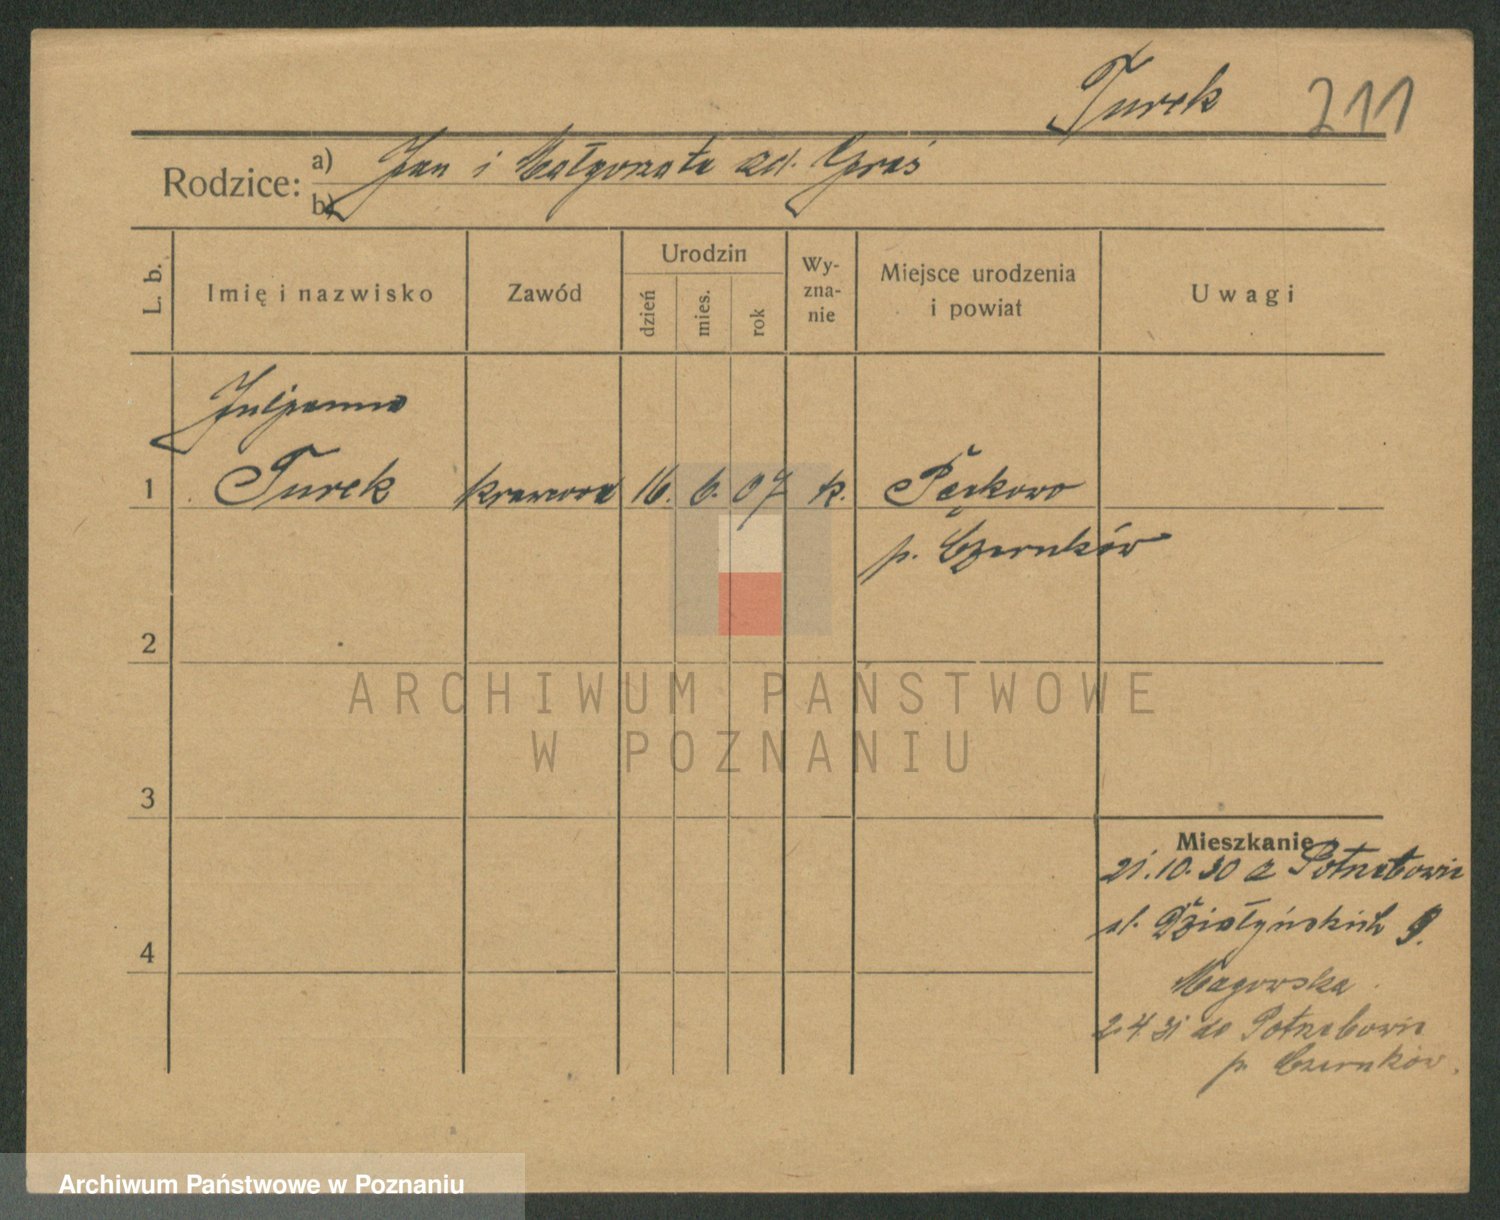 Turek 211
Rodzice: a) Jan i Małgorzata zd. Graś
b)
L. b.
Imię i nazwisko
Zawód
Urodzin
dzień
mies.
rok
Wy-
zna-
nie
Miejsce urodzenia
i powiat
Uwagi
Juljanna
1 Turek krawcowa 16. 6. 07 k. Pęckowo
p. Czarnków
2
ARCHIWUM PAŃSTWOWE
W POZNANIU
3
Mieszkanie
21.10.30 z
ul. Działyńskich 9.
4
Magowska
2.4.31 do
p. Czarnków.
Archiwum Państwowe w Poznaniu